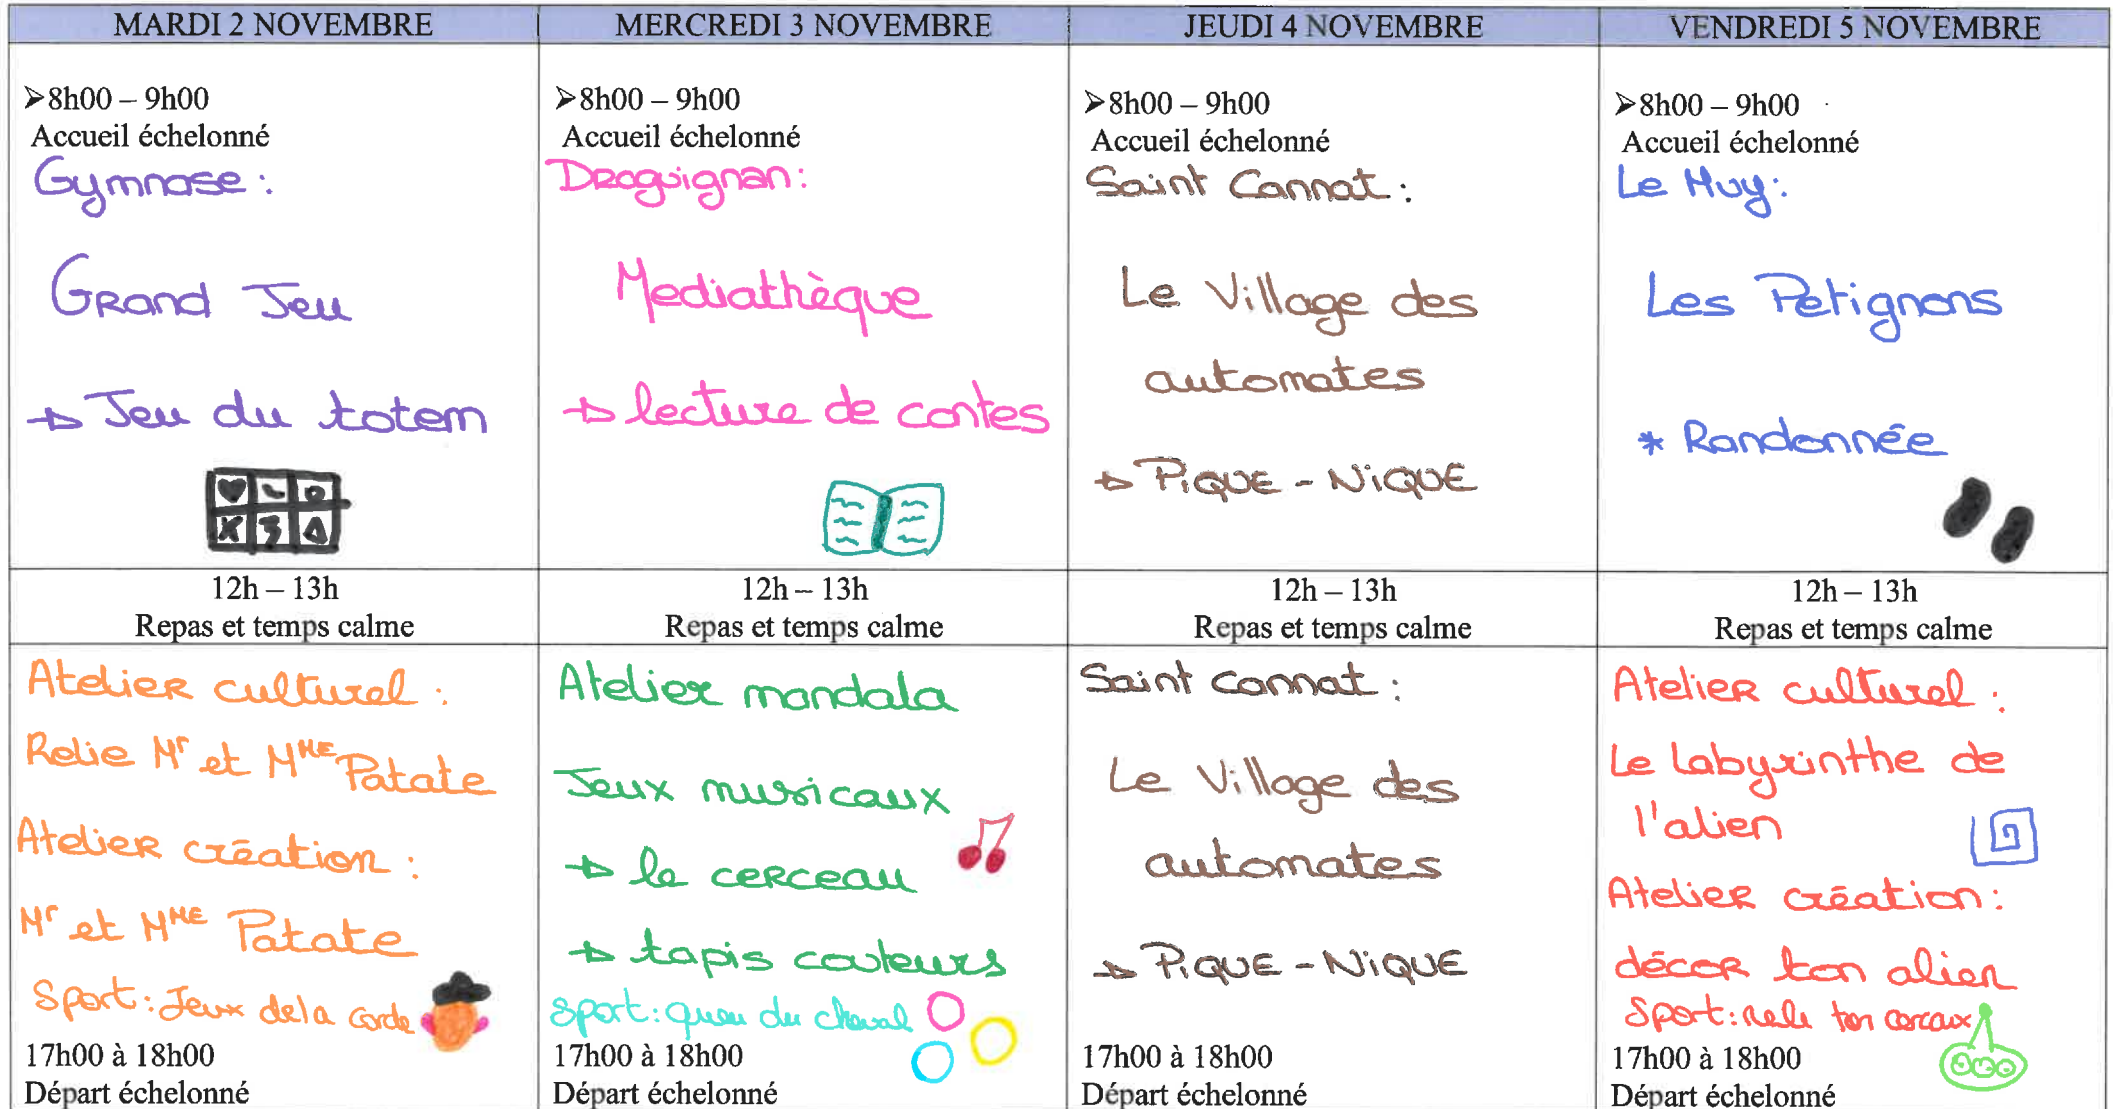 MARDI 2 NOVEMBRE
MERCREDI 3 NOVEMBRE
JEUDI 4 NOVEMBRE
VENDREDI 5 NOVEMBRE
➢8h00 – 9h00
Accueil échelonné
Gymnase :
Grand Jeu
→ Jeu du totem
➢8h00 – 9h00
Accueil échelonné
Draguignan :
Mediathèque
→ lecture de contes
➢8h00 – 9h00
Accueil échelonné
Saint Cannat :
Le Village des
automates
→ PiQUE - NiQUE
➢8h00 – 9h00
Accueil échelonné
Le Muy :
Les Petignons
* Randonnée
12h – 13h
Repas et temps calme
12h – 13h
Repas et temps calme
12h – 13h
Repas et temps calme
12h – 13h
Repas et temps calme
Atelier culturel :
Relie Mr et MME Patate
Atelier création :
Mr et MME Patate
Sport : Jeux de la corde
17h00 à 18h00
Départ échelonné
Atelier mandala
Jeux musicaux
→ le cerceau
→ tapis couleurs
Sport : queu du cheval
17h00 à 18h00
Départ échelonné
Saint Cannat :
Le Village des
automates
→ PiQUE - NiQUE
17h00 à 18h00
Départ échelonné
Atelier culturel :
Le labyrinthe de
l'alien
Atelier création :
décor ton alien
Sport : ton
17h00 à 18h00
Départ échelonné